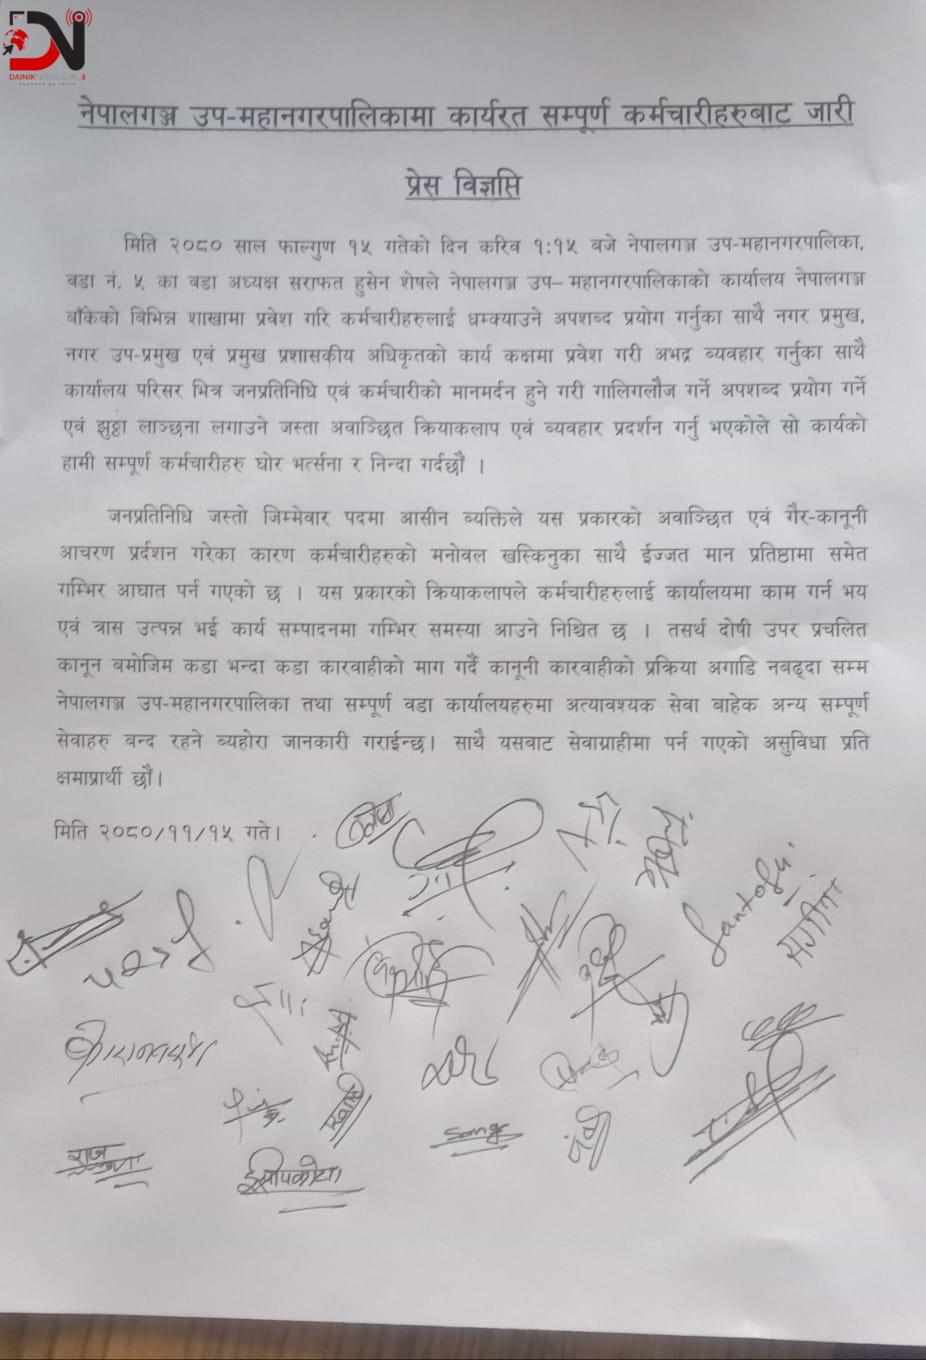 DN
DAINIK NEPALGUNJ
नेपालगञ्ज उप-महानगरपालिकामा कार्यरत सम्पूर्ण कर्मचारीहरुबाट जारी
प्रेस विज्ञप्ति
मिति २०८० साल फाल्गुण १५ गतेको दिन करिव १:१५ बजे नेपालगञ्ज उप-महानगरपालिका,
वडा नं. ५ का वडा अध्यक्ष सराफत हुसेन शेषले नेपालगञ्ज उप– महानगरपालिकाको कार्यालय नेपालगञ्ज
बाँकेको विभिन्न शाखामा प्रवेश गरि कर्मचारीहरुलाई धम्क्याउने अपशब्द प्रयोग गर्नुका साथै नगर प्रमुख,
नगर उप-प्रमुख एवं प्रमुख प्रशासकीय अधिकृतको कार्य कक्षमा प्रवेश गरी अभद्र ब्यवहार गर्नुका साथै
कार्यालय परिसर भित्र जनप्रतिनिधि एवं कर्मचारीको मानमर्दन हुने गरी गालिगलौज गर्ने अपशब्द प्रयोग गर्ने
एवं झुठ्ठा लाञ्छना लगाउने जस्ता अवाञ्छित क्रियाकलाप एवं ब्यवहार प्रदर्शन गर्नु भएकोले सो कार्यको
हामी सम्पूर्ण कर्मचारीहरु घोर भर्त्सना र निन्दा गर्दछौं ।
जनप्रतिनिधि जस्तो जिम्मेवार पदमा आसीन ब्यक्तिले यस प्रकारको अवाञ्छित एवं गैर-कानूनी
आचरण प्रर्दशन गरेका कारण कर्मचारीहरुको मनोवल खस्किनुका साथै ईज्जत मान प्रतिष्ठामा समेत
गम्भिर आघात पर्न गएको छ । यस प्रकारको क्रियाकलापले कर्मचारीहरुलाई कार्यालयमा काम गर्न भय
एवं त्रास उत्पन्न भई कार्य सम्पादनमा गम्भिर समस्या आउने निश्चित छ । तसर्थ दोषी उपर प्रचलित
कानून बमोजिम कडा भन्दा कडा कारवाहीको माग गर्दै कानूनी कारवाहीको प्रक्रिया अगाडि नबढ्दा सम्म
नेपालगञ्ज उप-महानगरपालिका तथा सम्पूर्ण वडा कार्यालयहरुमा अत्यावश्यक सेवा बाहेक अन्य सम्पूर्ण
सेवाहरु बन्द रहने ब्यहोरा जानकारी गराईन्छ। साथै यसबाट सेवाग्राहीमा पर्न गएको असुविधा प्रति
क्षमाप्रार्थी छौं।
मिति २०८०/११/१५ गते।
संगीता